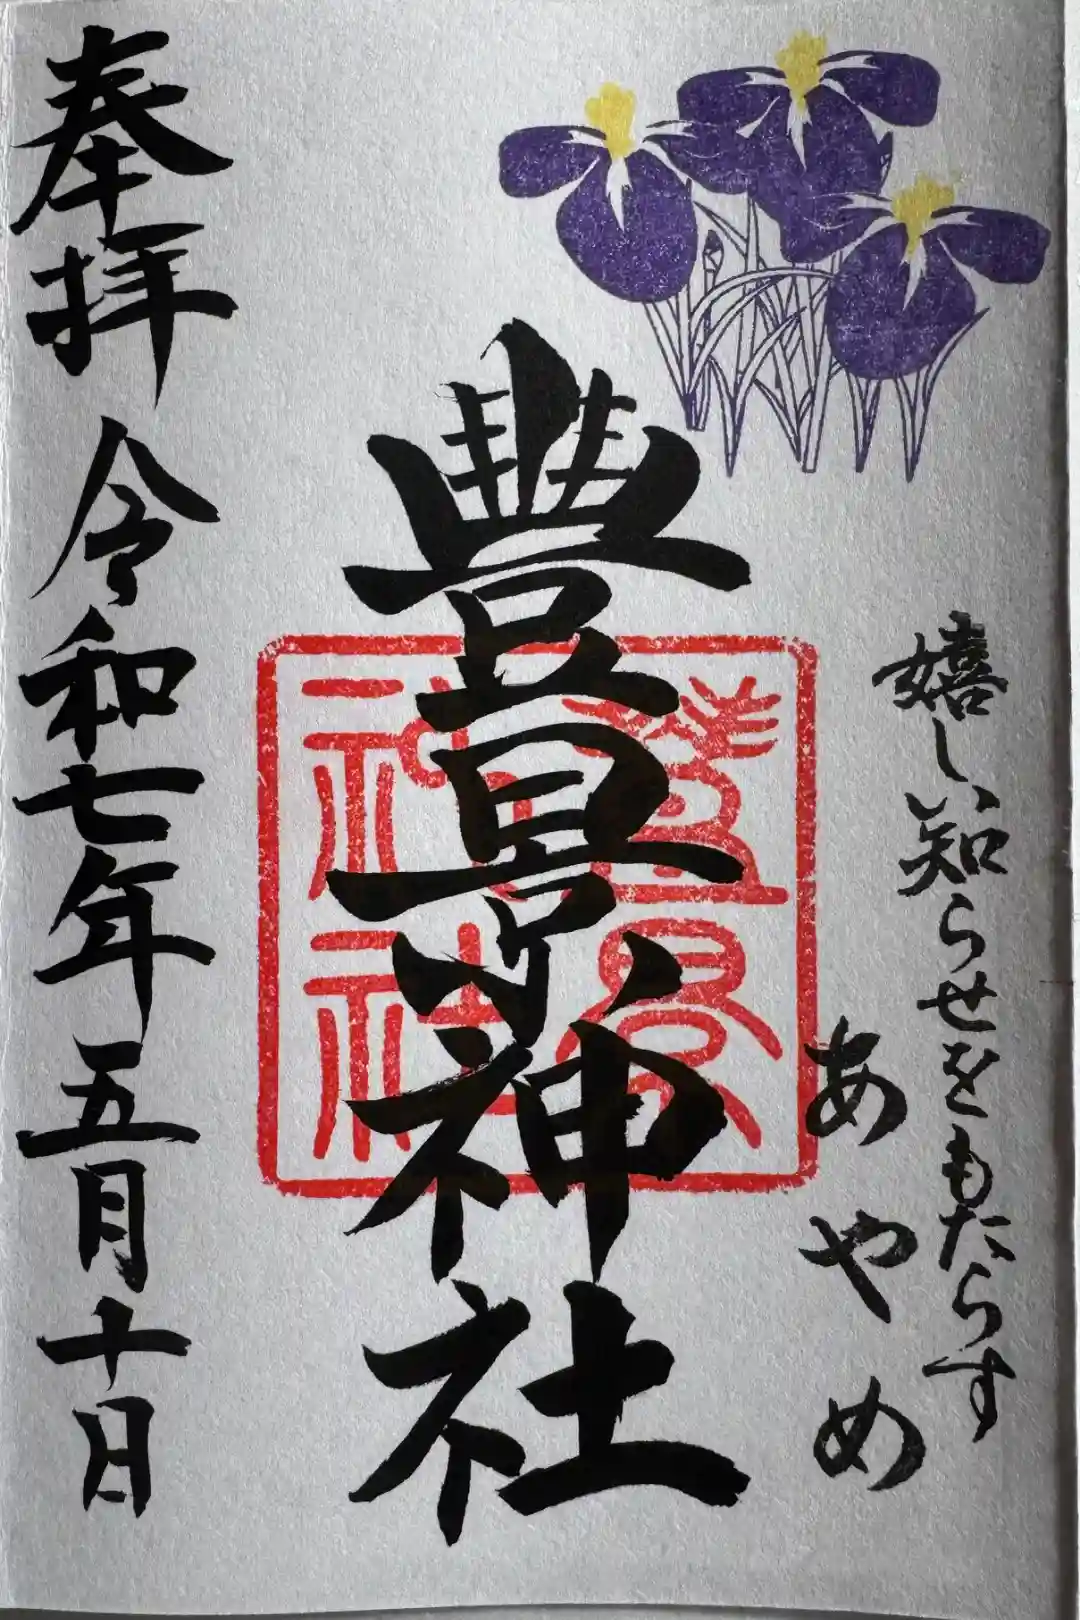 嬉しい知らせをもたらす
あやめ
豐景神社
奉拝 令和七年五月十日
豐景
神社